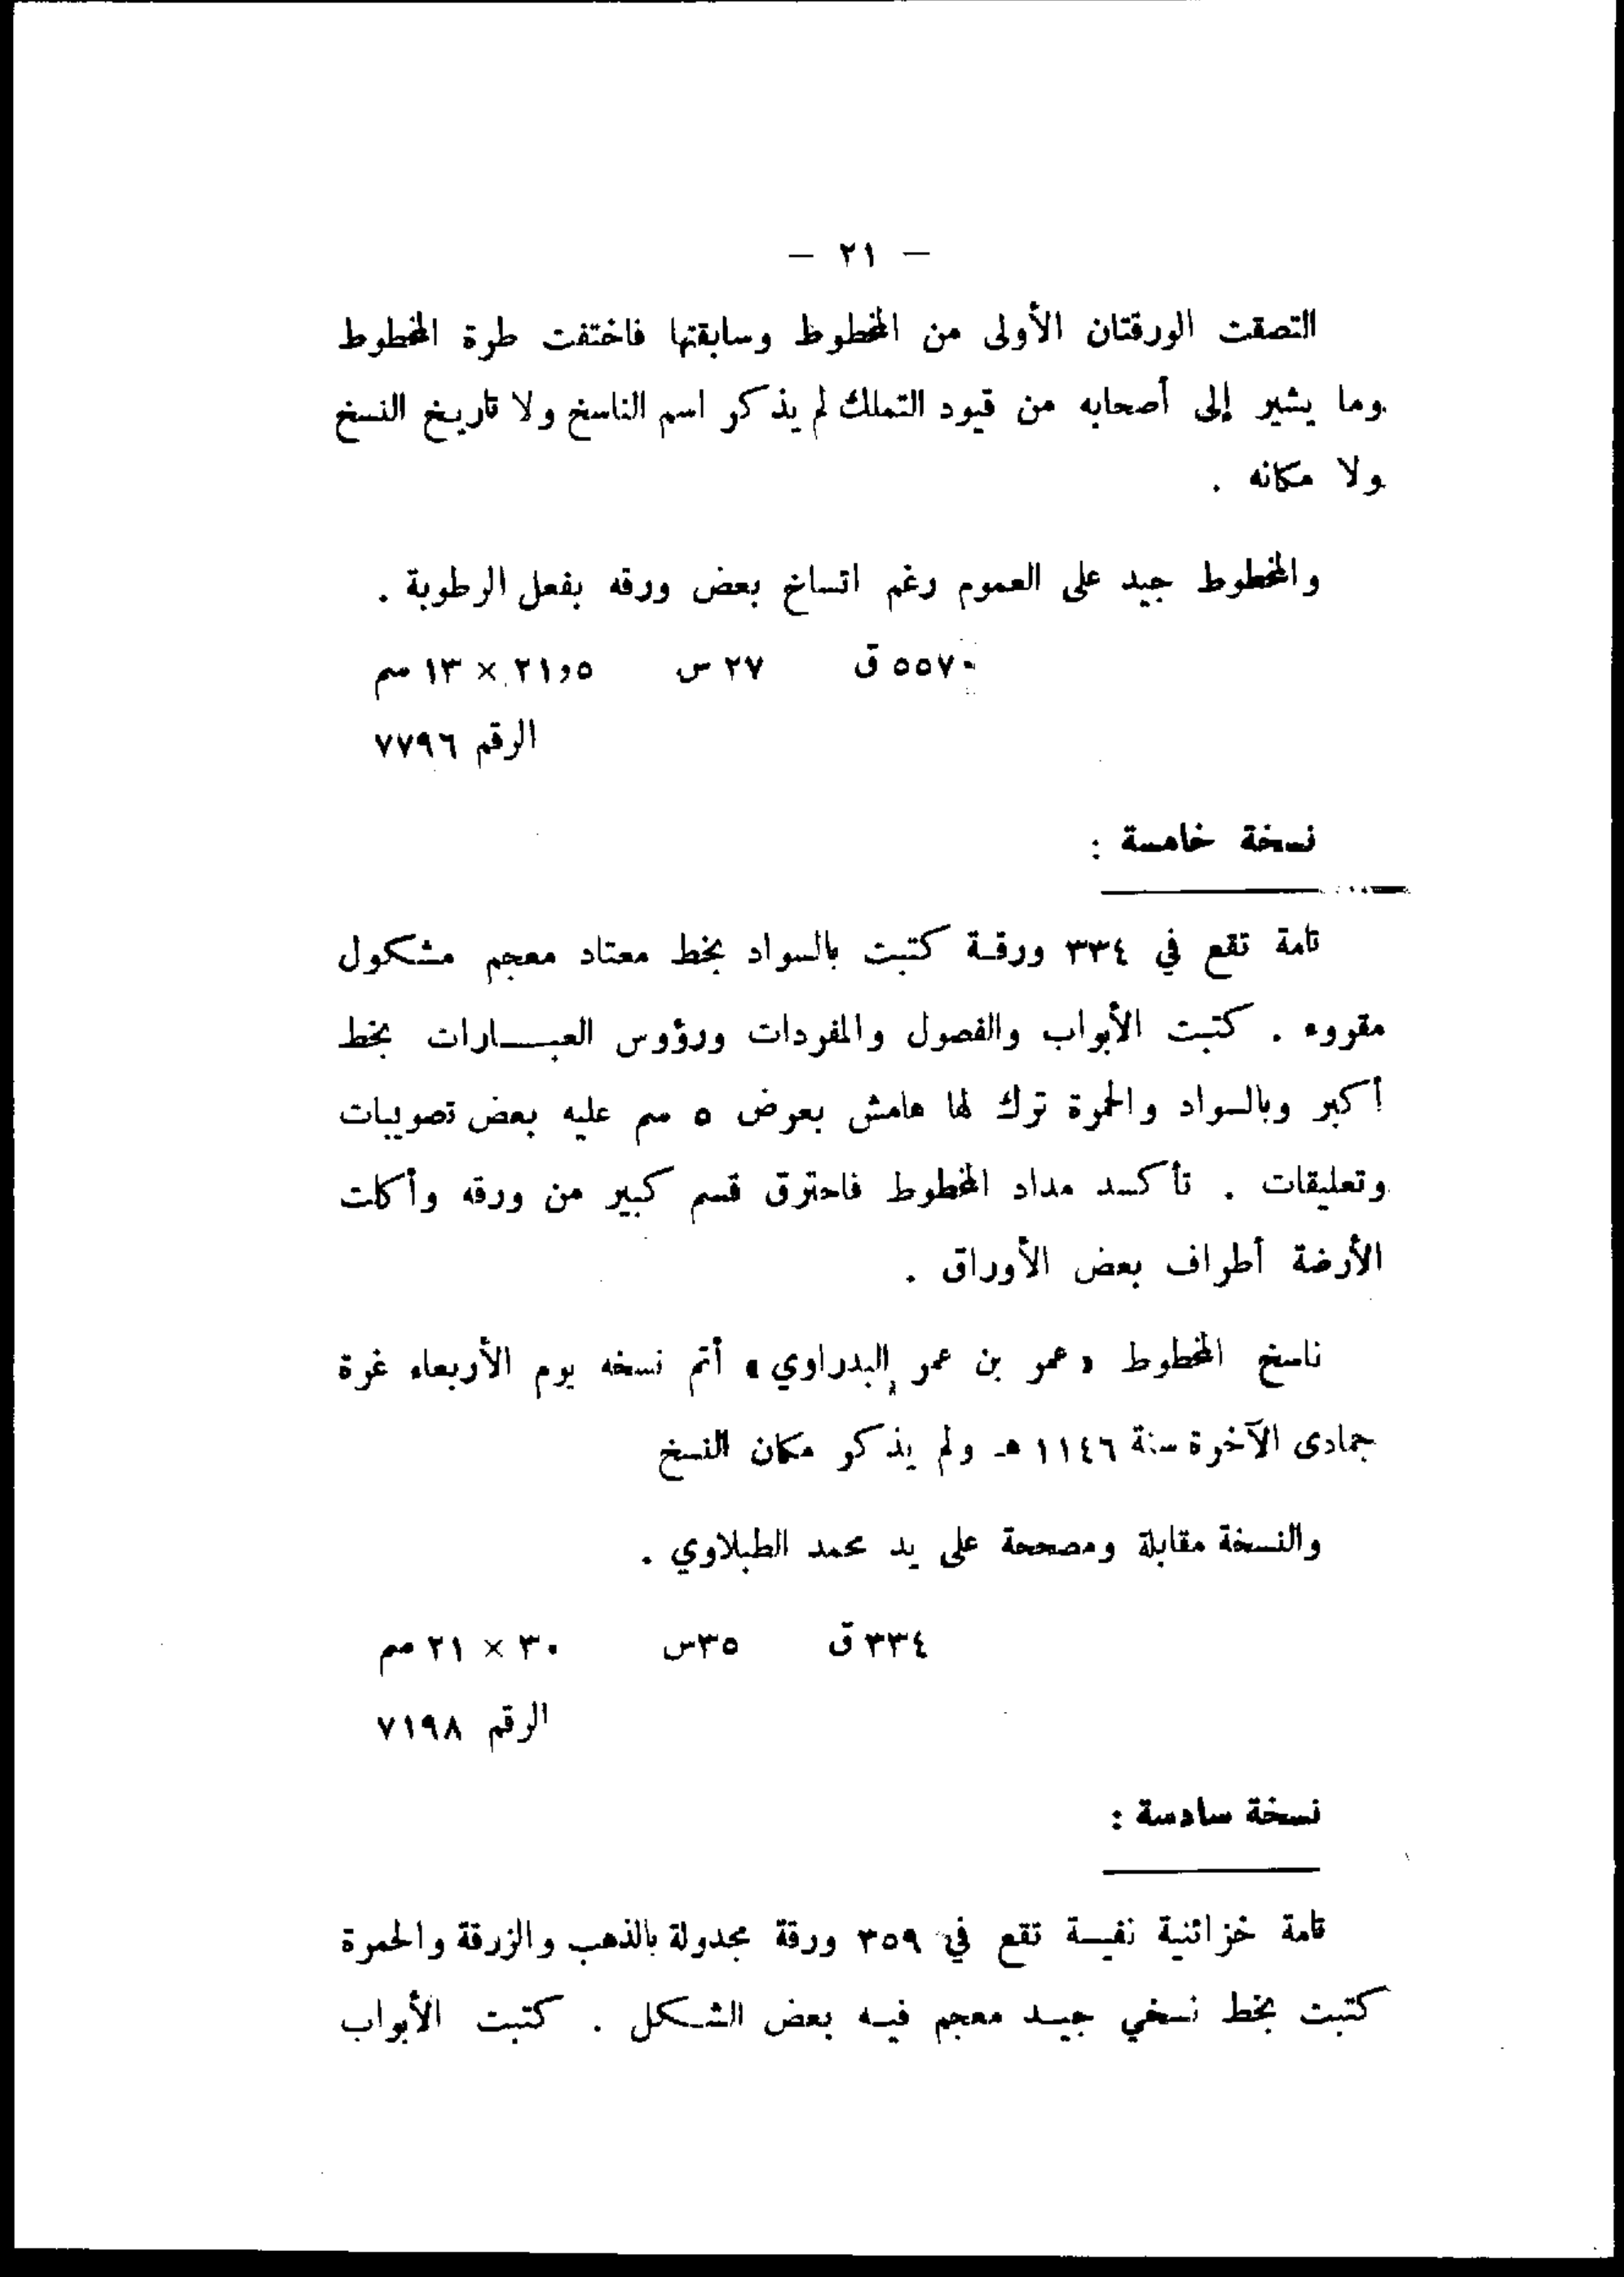 — ٢١ —
التصقت الورقتان الأولى من المخطوط وسابقتها فاختفت طرة المخطوط
وما يشير إلى أصحابه من قيود التملك لم يذكر اسم الناسخ ولا تاريخ النسخ
ولا مكانه .
والمخطوط جيد على العموم رغم اتساخ بعض ورقه بفعل الرطوبة .
٥٥٧٠ ق ٢٧ س ٢١,٥ × ١٣ سم
الرقم ٧٧٩٦
نسخة خامسة :
تامة تقع في ٣٣٤ ورقة كتبت بالسواد بخط معتاد معجم مشكول
مقروء . كتبت الأبواب والفصول والمفردات ورؤوس العبـــارات بخط
أكبر وبالسواد والحمرة ترك لها هامش بعرض ٥ سم عليه بعض تصويبات
وتعليقات . تأكسد مداد المخطوط فاحترق قسم كبير من ورقه وأكلت
الأرضة أطراف بعض الأوراق .
ناسخ المخطوط « عمر بن عمر البدراوي » أتم نسخه يوم الأربعاء غرة
جمادى الآخرة سنة ١١٤٦ هـ ولم يذكر مكان النسخ
والنسخة مقابلة ومصححة على يد محمد الطبلاوي .
٣٣٤ ق ٣٥س ٣٠ × ٢١ سم
الرقم ٧١٩٨
نسخة سادسة :
تامة خزائنية نفيسة تقع في ٣٥٩ ورقة مجدولة بالذهب والزرقة والحمرة
كتبت بخط نسخي جيد معجم فيه بعض الشكل . كتبت الأبواب